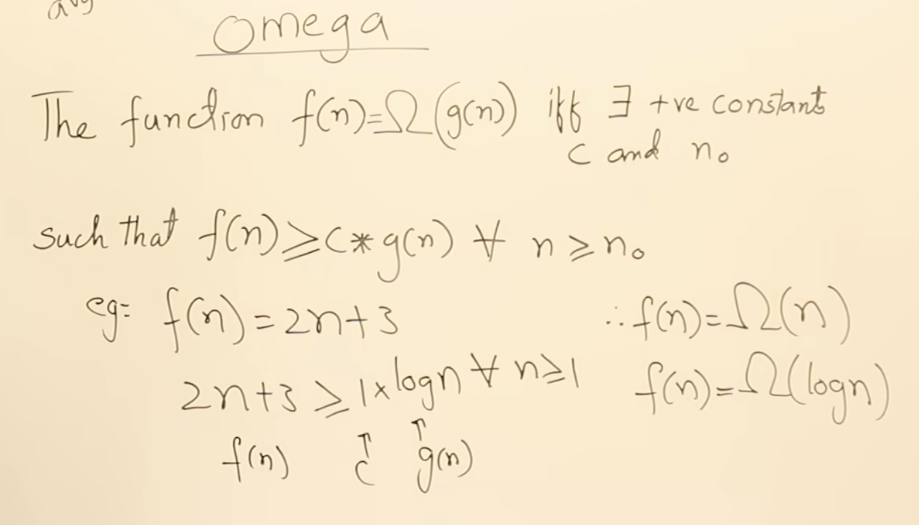 avg
Omega
The function f(n)=Ω(g(n)) iff ∃ +ve constant
c and n₀
such that f(n)≥c*g(n) ∀ n≥n₀
eg= f(n)=2n+3
2n+3≥1×logn ∀ n≥1
f(n) ↑c ↑g(n)
∴f(n)=Ω(n)
f(n)=Ω(logn)